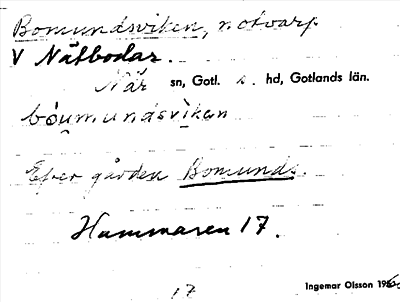 Bomundsviken, notvarp
V Nätbodar.
När sn, Gotl. s. hd, Gotlands län.
bóumundsvikan
Efter gården Bomunds.
Hammaren 17.
17 Ingemar Olsson 1960